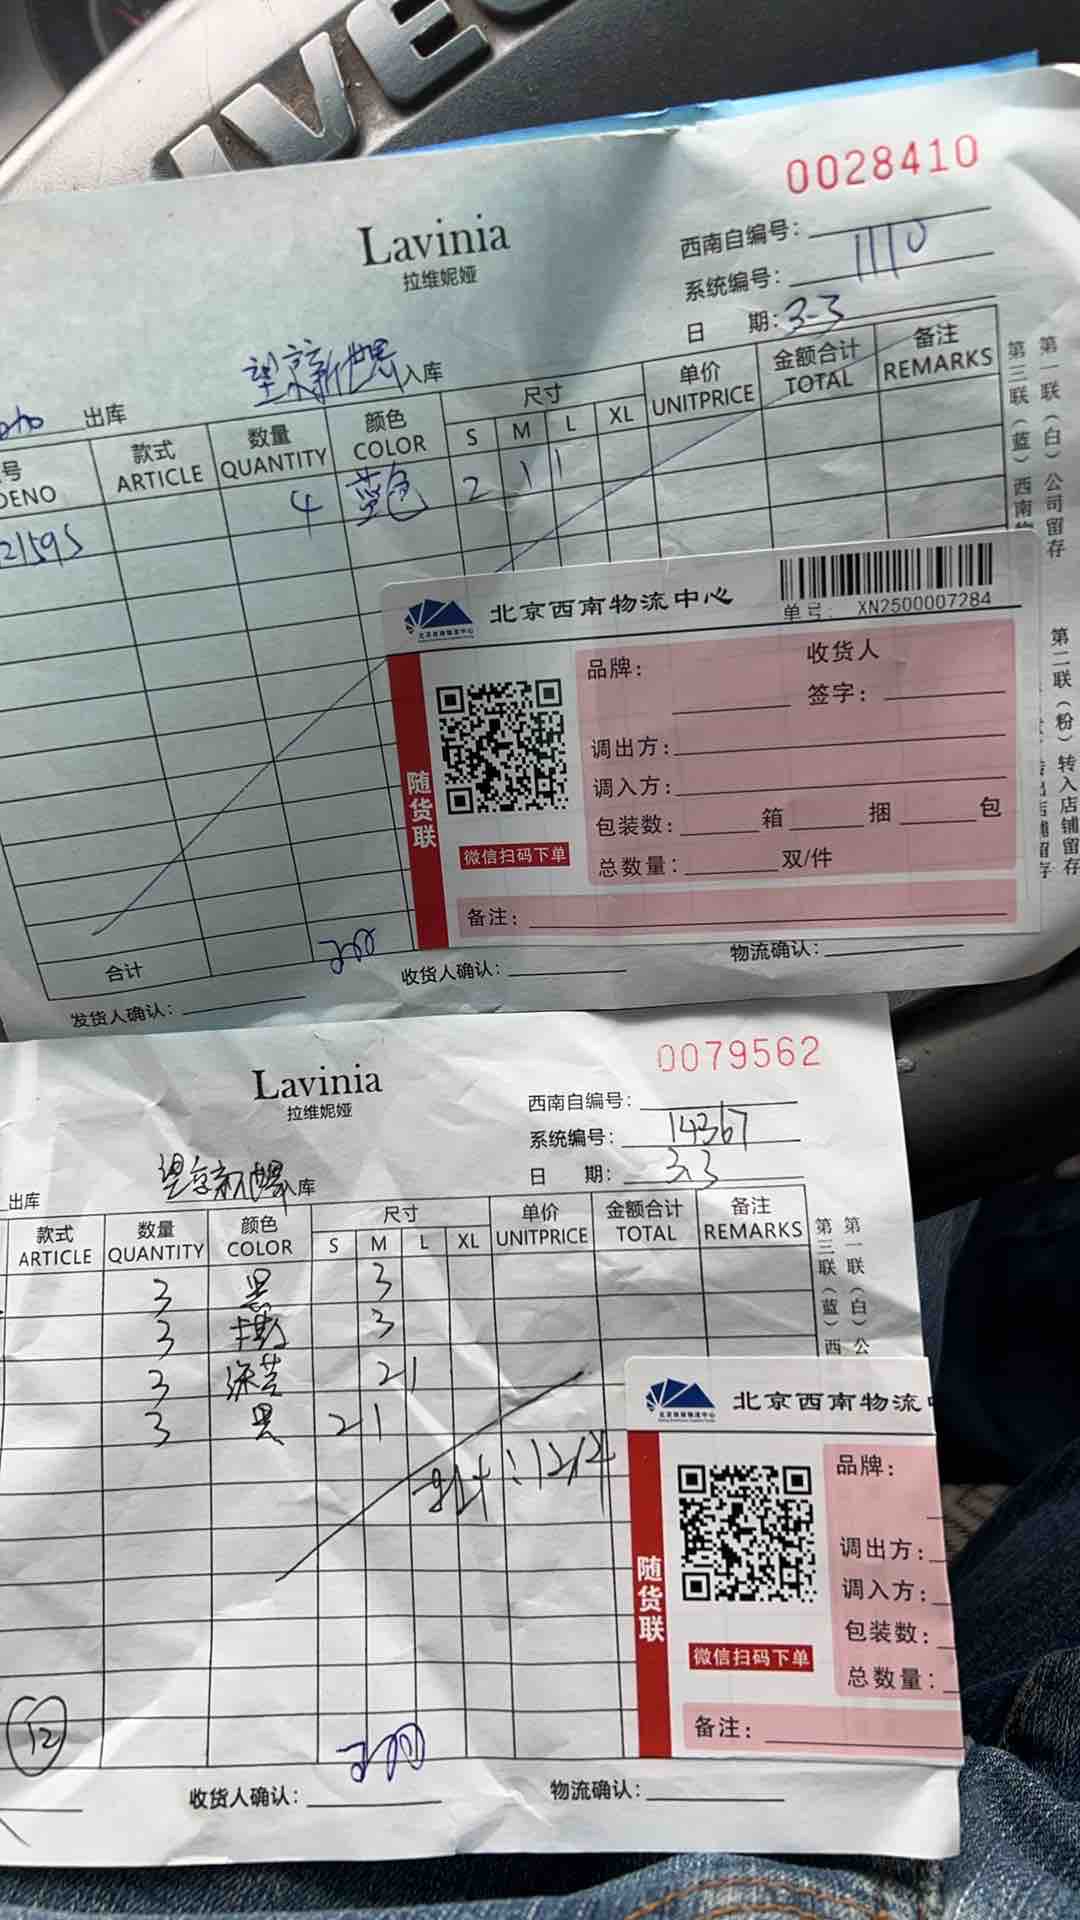 IVE
0028410
Lavinia
拉维妮娅
西南自编号：
系统编号： 1110
日 期：3-3
出库 望京新世界 入库
号 款式 数量 颜色 尺寸 单价 金额合计 备注
DENO ARTICLE QUANTITY COLOR S M L XL UNITPRICE TOTAL REMARKS
21595 4 蓝色 2 1 1
第一联（白）公司留存
第三联（蓝）西南物
第二联（粉）转入店铺留存
转出店铺留存
北京西南物流中心
单号： XN2500007284
品牌： 收货人
签字：
调出方：
调入方：
包装数： 箱 捆 包
总数量： 双/件
备注：
随货联
微信扫码下单
合计
发货人确认： 收货人确认： 物流确认：
0079562
Lavinia
拉维妮娅
西南自编号：
系统编号： 14367
日 期： 3.3
出库 望京新世界 入库
款式 数量 颜色 尺寸 单价 金额合计 备注
ARTICLE QUANTITY COLOR S M L XL UNITPRICE TOTAL REMARKS
3 黑 3
3 3
3 2 1
3 黑 2 1
共计：12件
第一联（白）公
第三联（蓝）西
北京西南物流
品牌：
调出方：
调入方：
包装数：
总数量：
备注：
随货联
微信扫码下单
12
收货人确认： 物流确认：